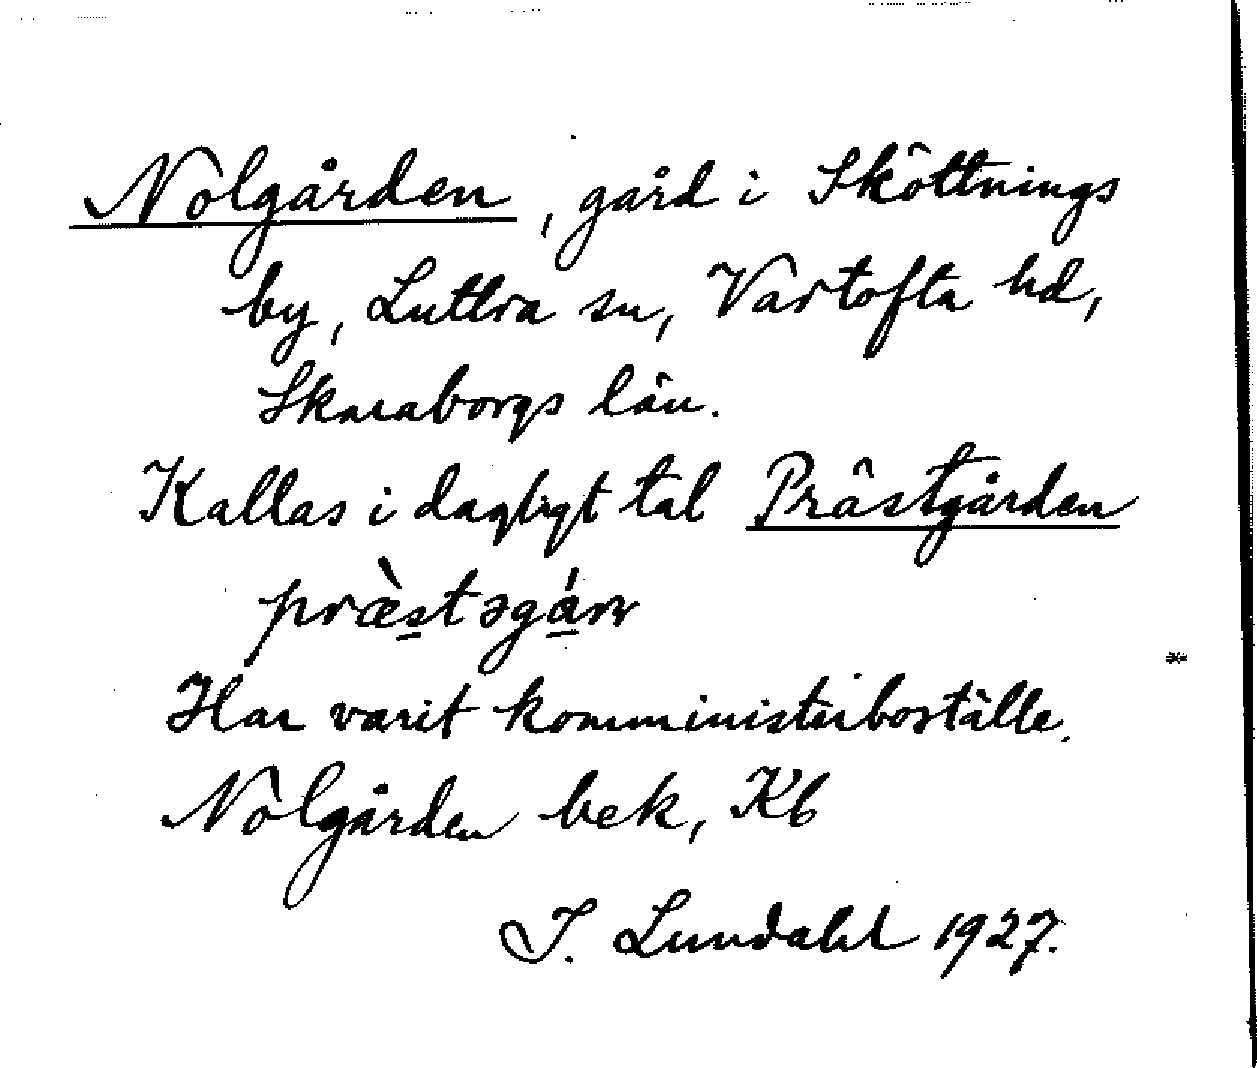 Nolgården, gård i Sköttnings
by, Luttra sn, Vartofta hd,
Skaraborgs län.
Kallas i dagligt tal Prästgården
præ̀stəgá̱rn
Har varit komministerboställe.
Nolgården bek, Kb
I. Lundahl 1927.